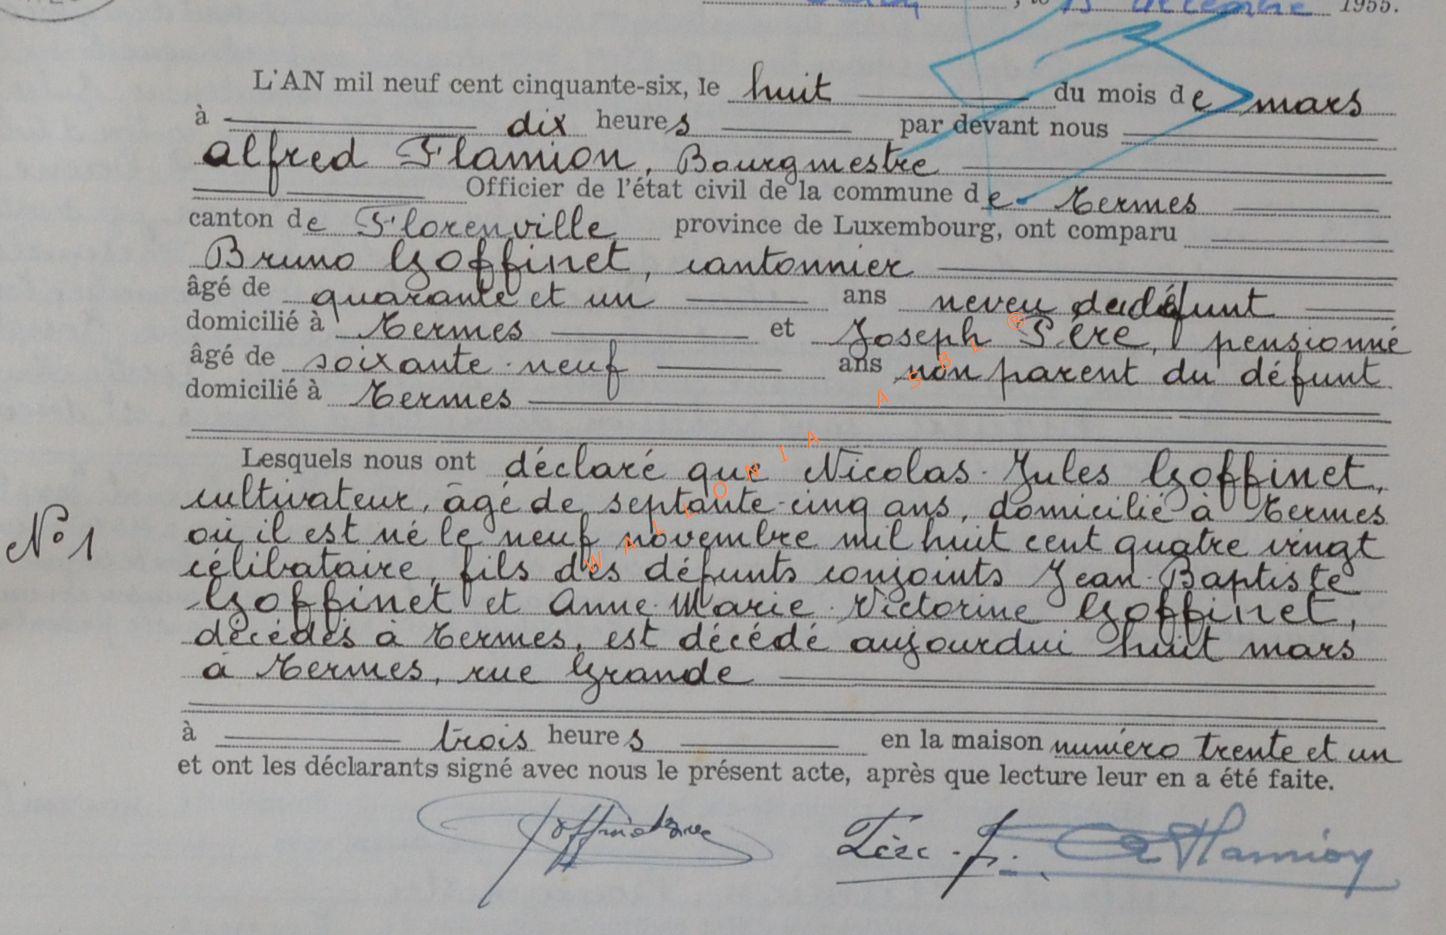 , le 15 décembre 1955.
L'AN mil neuf cent cinquante-six, le huit du mois de mars
à dix heures par devant nous
Alfred Flamion, Bourgmestre
Officier de l'état civil de la commune de Termes
canton de Florenville province de Luxembourg, ont comparu
Bruno Goffinet, cantonnier
âgé de quarante et un ans neveu du défunt
domicilié à Termes et Joseph Père, pensionné
âgé de soixante-neuf ans non parent du défunt
domicilié à Termes
Lesquels nous ont déclaré que Nicolas-Jules Goffinet,
cultivateur, âgé de septante-cinq ans, domicilié à Termes
N° 1
où il est né le neuf novembre mil huit cent quatre vingt
célibataire, fils des défunts conjoints Jean-Baptiste
Goffinet et Anne-Marie-Victorine Goffinet,
décédés à Termes, est décédé aujourdui huit mars
à Termes, rue Grande
à trois heures en la maison numéro trente et un
et ont les déclarants signé avec nous le présent acte, après que lecture leur en a été faite.
Père J. Flamion
WALLONIA ASBL ©